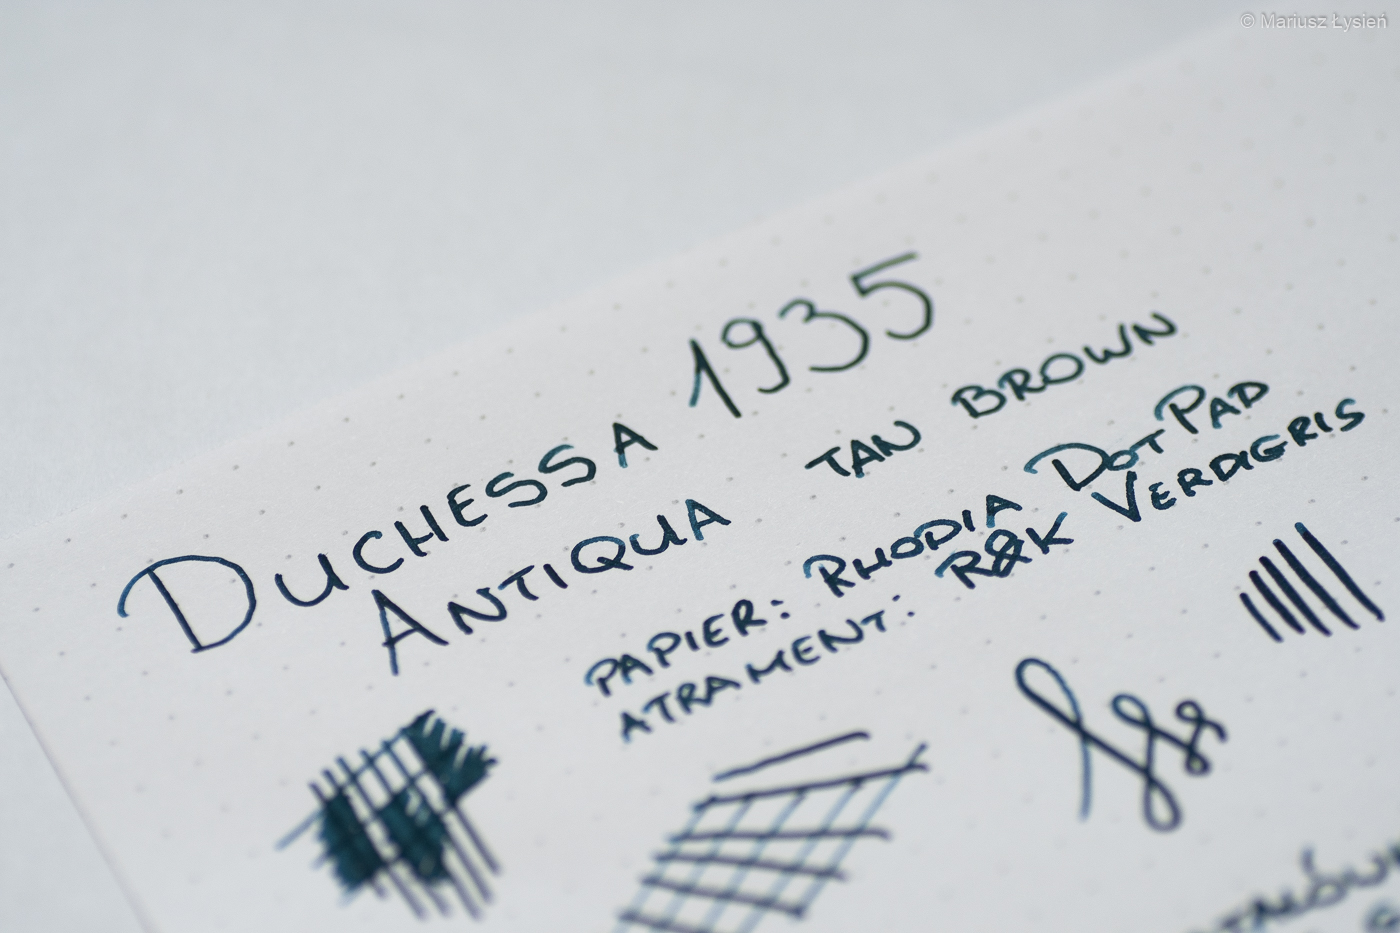 © Mariusz Łysień
DUCHESSA 1935
ANTIQUA TAN BROWN
PAPIER: RHODIA DOTPAD
ATRAMENT: R&K VERDIGRIS